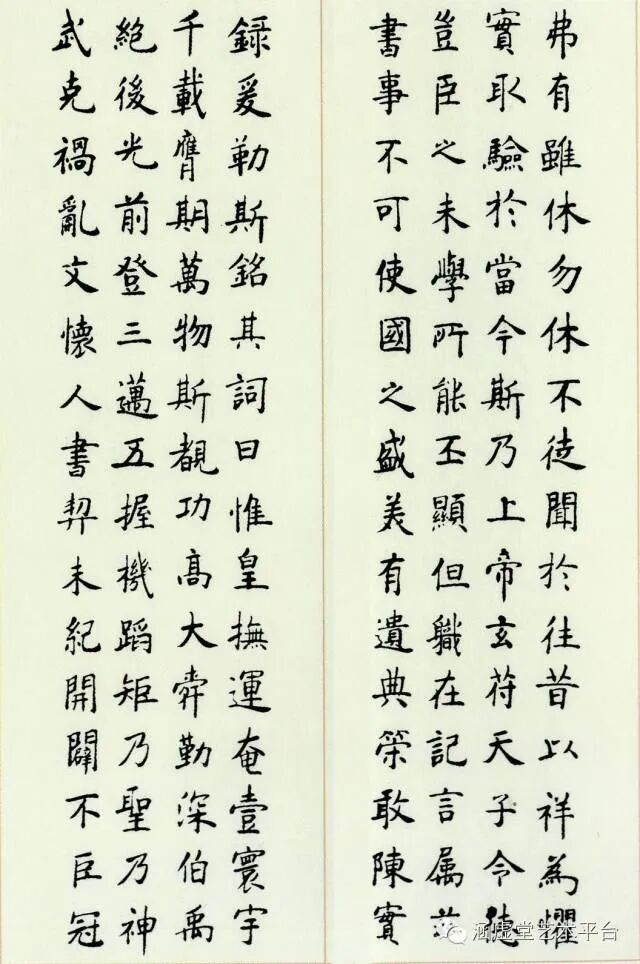 弗有雖休勿休不徒聞於往昔以祥為懼
實取驗於當今斯乃上帝玄符天子令德
豈臣之末學所能丕顯但職在記言属茲
書事不可使國之盛美有遺典策敢陳實
錄爰勒斯銘其詞曰惟皇撫運奄壹寰宇
千載膺期萬物斯覩功高大舜勤深伯禹
絕後光前登三邁五握機蹈矩乃聖乃神
武克禍亂文懷人書契未紀開闢不臣冠
涵虚堂艺术平台